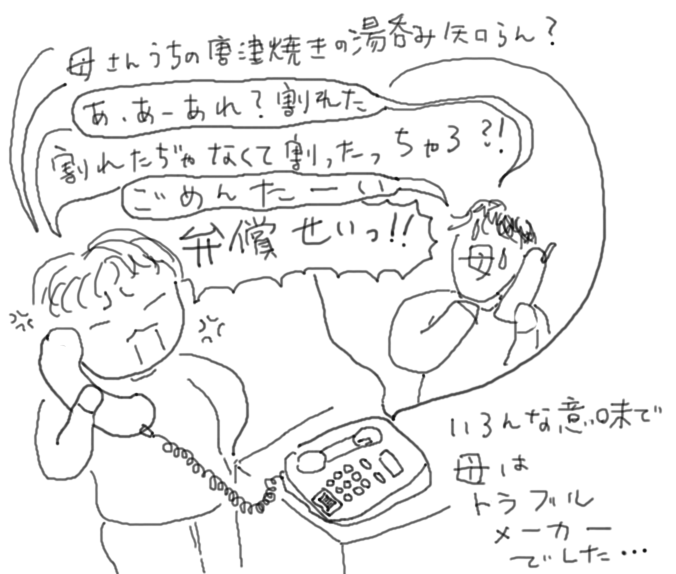 母さんうちの唐津焼きの湯呑み知らん?
あ、あーあれ?割れた
割れたぢゃなくて割ったっちゃろ?!
ごめんたーい
弁償せいっ!!
母
いろんな意味で
母は
トラブル
メーカー
でした…